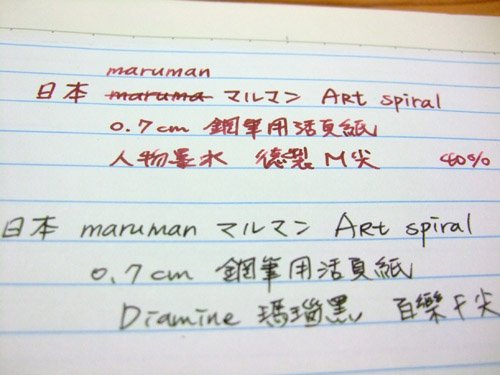 maruman
日本 maruma マルマン ARt spiral
0.7cm 鋼筆用活頁紙
人物墨水 德製 M尖
日本 maruman マルマン ARt spiral
0.7cm 鋼筆用活頁紙
Diamine 瑪瑙黑 百樂 F尖